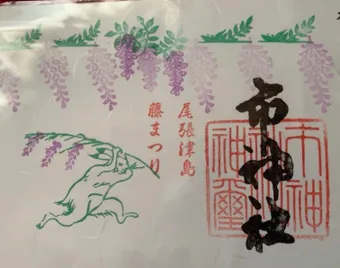 市神社
市神社神璽
尾張津島
藤まつり